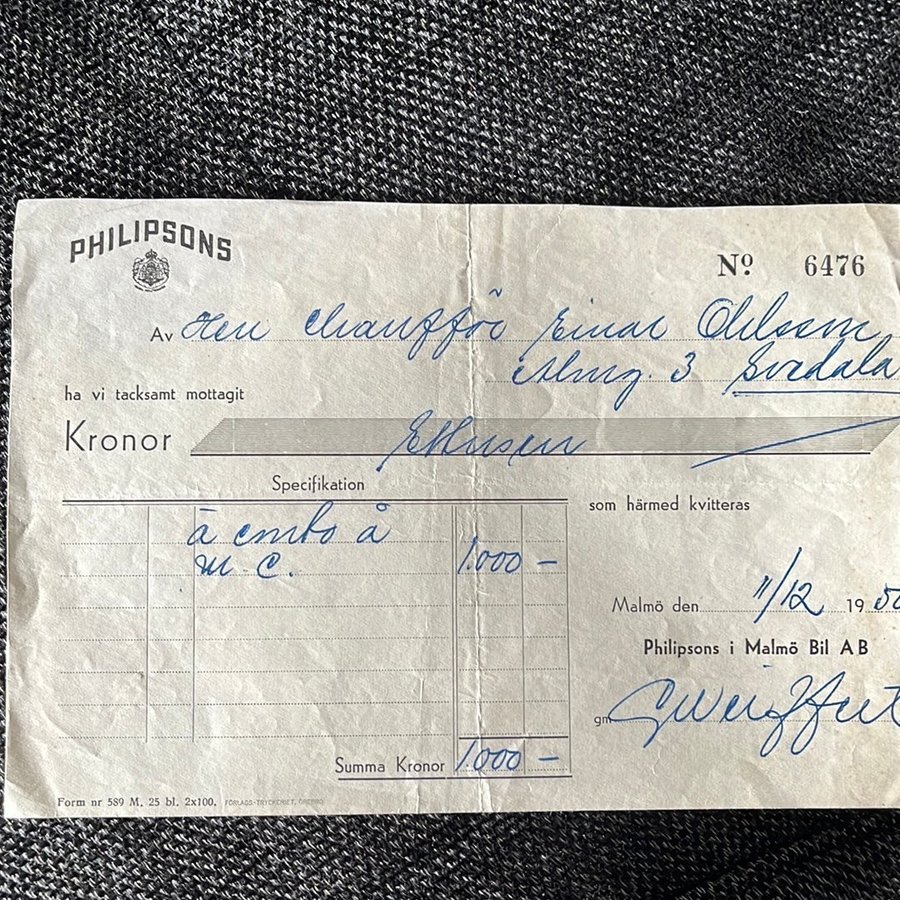 PHILIPSONS
Nº 6476
Av Herr Chaufför Einar Ohlsson
3 Svedala
ha vi tacksamt mottagit
Kronor Ettusen
Specifikation
som härmed kvitteras
à conto å
M.C. 1.000 –
Malmö den 11/12 1950
Philipsons i Malmö Bil AB
gm
Summa Kronor 1.000 –
Form nr 589 M. 25 bl. 2x100. FÖRLAGS-TRYCKERIET, ÖREBRO